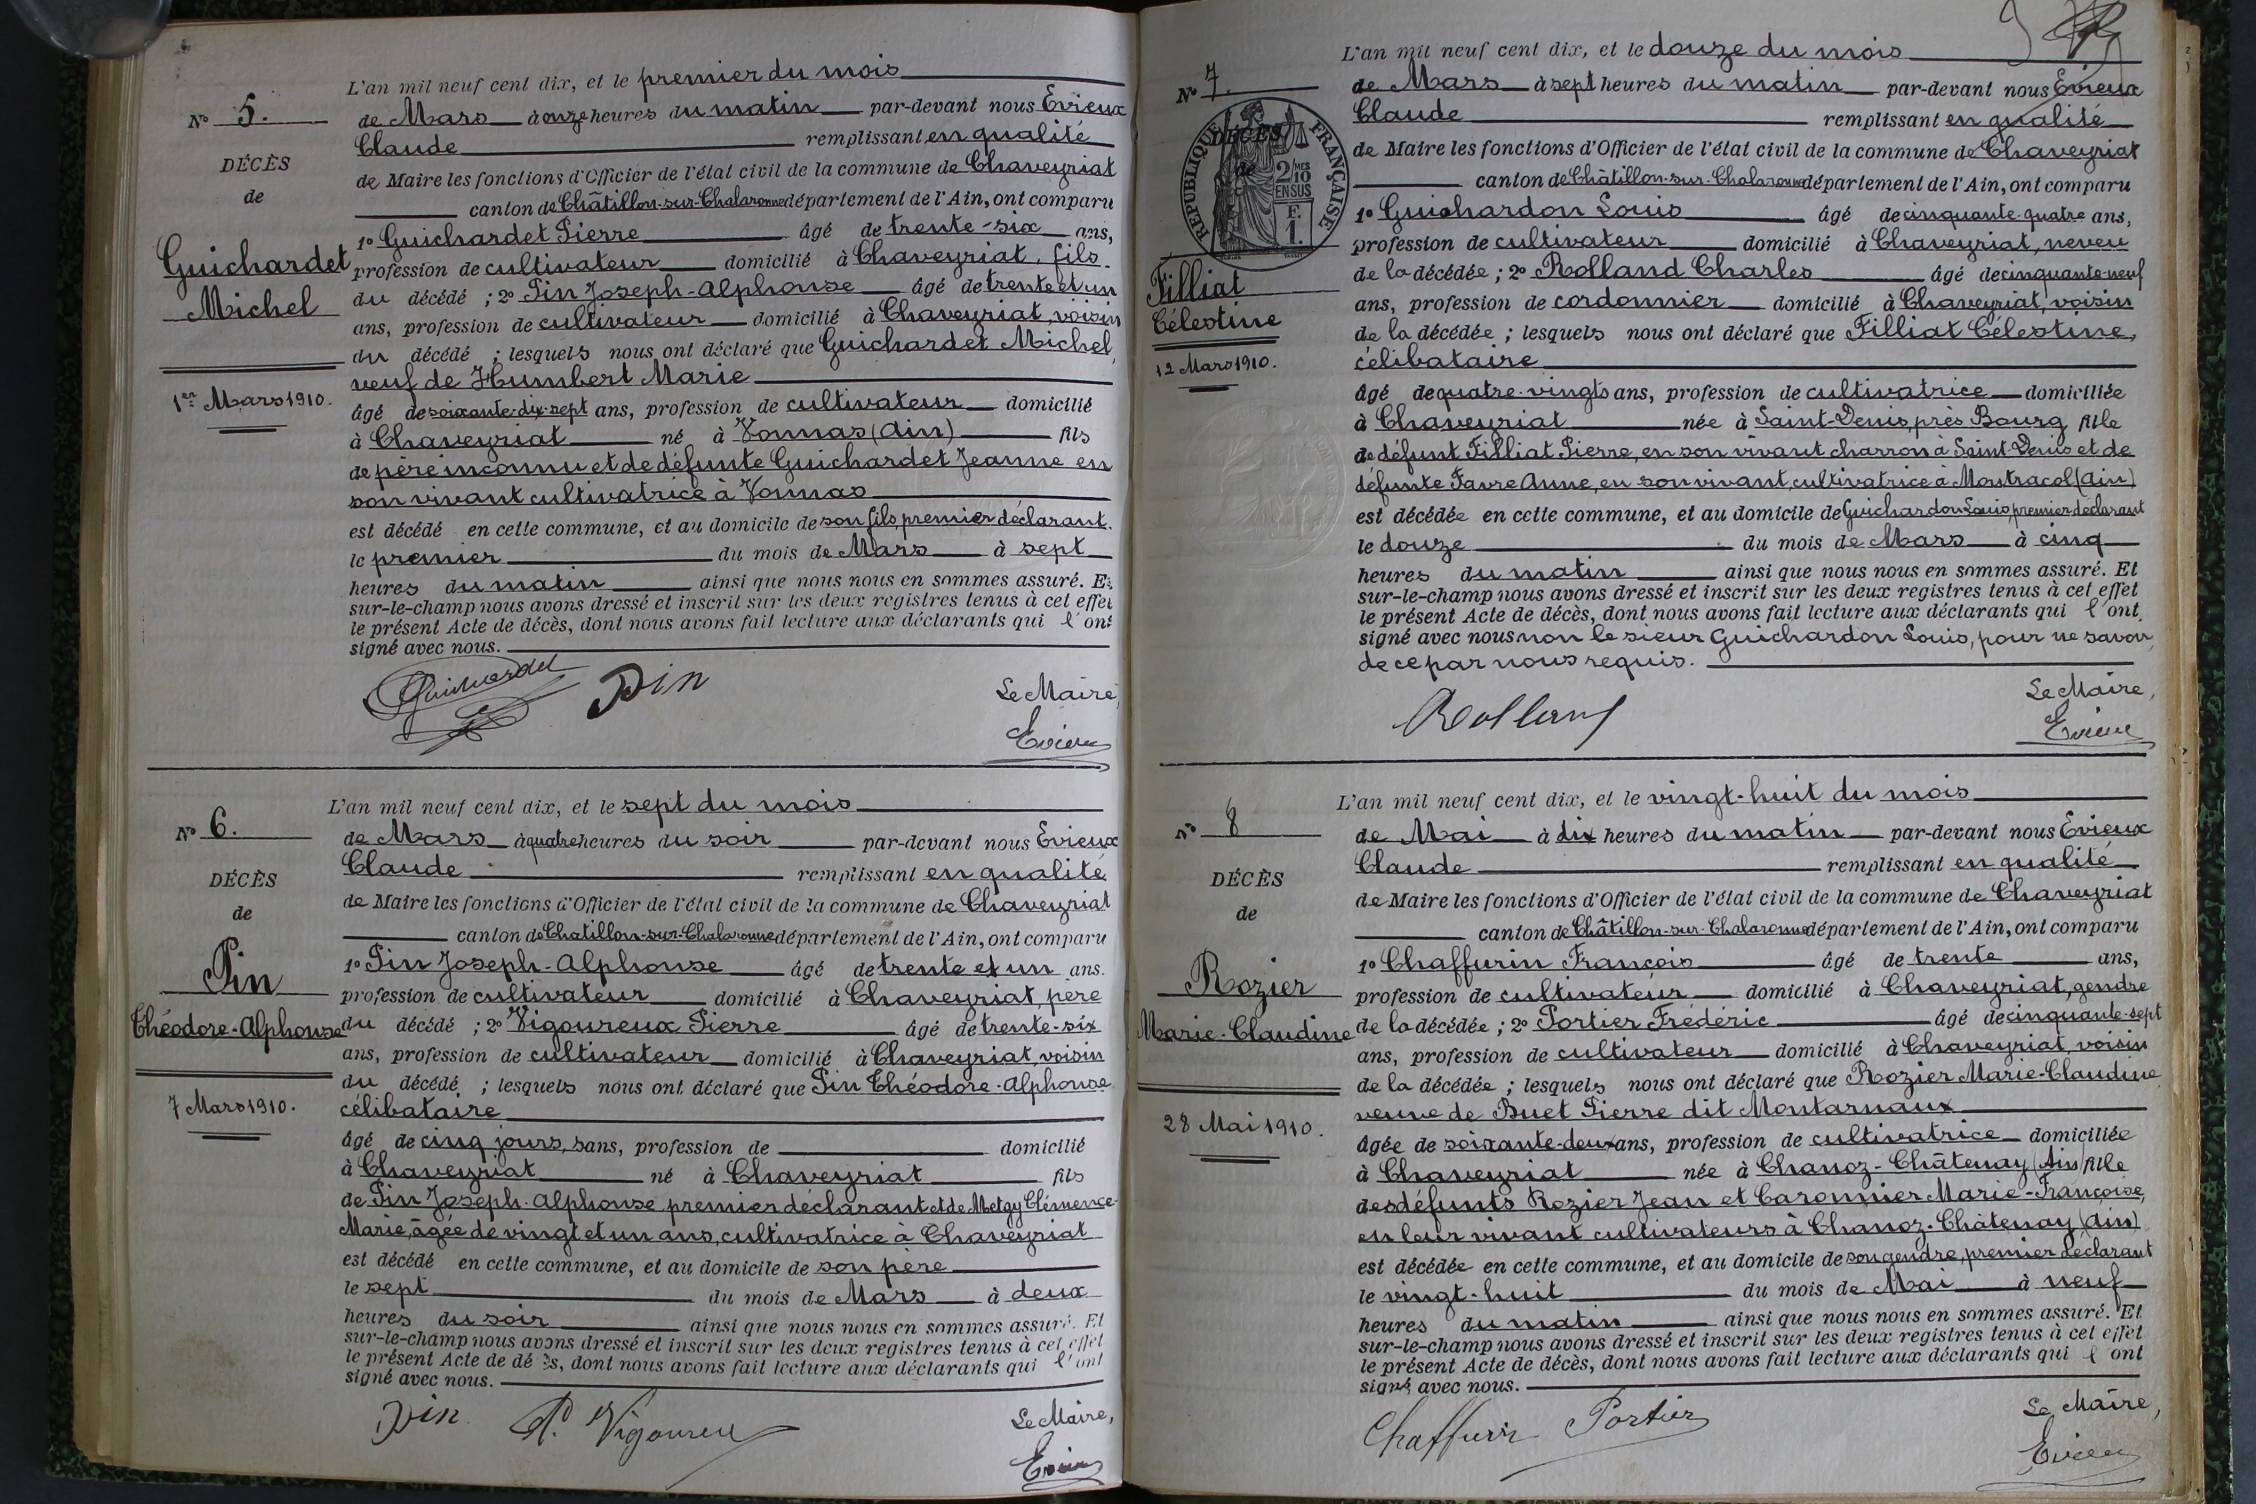 L'an mil neuf cent dix, et le premier du mois
N° 5.
de Mars à onze heures du matin par-devant nous Evieux
Claude remplissant en qualité
DÉCÈS
de Maire les fonctions d'Officier de l'état civil de la commune de Chaveyriat
de
canton de Châtillon-sur-Chalaronne département de l'Ain, ont comparu
1° Guichardet Pierre âgé de trente-six ans,
Guichardet
profession de cultivateur domicilié à Chaveyriat, fils
Michel
du décédé ; 2° Pin Joseph-Alphonse âgé de trente et un
ans, profession de cultivateur domicilié à Chaveyriat, voisin
du décédé ; lesquels nous ont déclaré que Guichardet Michel,
veuf de Humbert Marie
1er Mars 1910.
âgé de soixante-dix-sept ans, profession de cultivateur domicilié
à Chaveyriat né à Vonnas (Ain) fils
de père inconnu et de défunte Guichardet Jeanne en
son vivant cultivatrice à Vonnas
est décédé en cette commune, et au domicile de son fils, premier déclarant.
le premier du mois de Mars à sept
heures du matin ainsi que nous nous en sommes assuré. Et
sur-le-champ nous avons dressé et inscrit sur les deux registres tenus à cet effet
le présent Acte de décès, dont nous avons fait lecture aux déclarants qui l'ont
signé avec nous.
Guichardet Pin
Le Maire,
Evieux
L'an mil neuf cent dix, et le sept du mois
N° 6.
de Mars à quatre heures du soir par-devant nous Evieux
Claude remplissant en qualité
DÉCÈS
de Maire les fonctions d'Officier de l'état civil de la commune de Chaveyriat
de
canton de Chatillon-sur-Chalaronne département de l'Ain, ont comparu
1° Pin Joseph-Alphonse âgé de trente et un ans.
Pin
profession de cultivateur domicilié à Chaveyriat, père
Théodore-Alphonse
du décédé ; 2° Vigoureux Pierre âgé de trente-six
ans, profession de cultivateur domicilié à Chaveyriat, voisin
du décédé ; lesquels nous ont déclaré que Pin Théodore-Alphonse
7 Mars 1910.
célibataire
âgé de cinq jours, sans, profession de domicilié
à Chaveyriat né à Chaveyriat fils
de Pin Joseph-Alphonse premier déclarant et de Metgy Clémence-
Marie, âgée de vingt et un ans, cultivatrice à Chaveyriat
est décédé en cette commune, et au domicile de son père
le sept du mois de Mars à deux
heures du soir ainsi que nous nous en sommes assuré. Et
sur-le-champ nous avons dressé et inscrit sur les deux registres tenus à cet effet
le présent Acte de décès, dont nous avons fait lecture aux déclarants qui l'ont
signé avec nous.
Pin P. Vigoureux
Le Maire,
Evieux
L'an mil neuf cent dix, et le douze du mois
N° 7.
de Mars à sept heures du matin par-devant nous Evieux
Claude remplissant en qualité
DÉCÈS
de
RÉPUBLIQUE FRANÇAISE
2 MES
10
EN SUS
F.
1.
de Maire les fonctions d'Officier de l'état civil de la commune de Chaveyriat
canton de Châtillon-sur-Chalaronne département de l'Ain, ont comparu
1° Guichardon Louis âgé de cinquante-quatre ans,
profession de cultivateur domicilié à Chaveyriat, neveu
Filliat
Célestine
de la décédée ; 2° Rolland Charles âgé de cinquante-neuf
ans, profession de cordonnier domicilié à Chaveyriat, voisin
de la décédée ; lesquels nous ont déclaré que Filliat Célestine,
célibataire
12 Mars 1910.
âgé de quatre-vingts ans, profession de cultivatrice domiciliée
à Chaveyriat née à Saint-Denis, près Bourg fille
de défunt Filliat Pierre, en son vivant charron à Saint-Denis et de
défunte Favre Anne, en son vivant, cultivatrice à Montracol (Ain)
est décédée en cette commune, et au domicile de Guichardon Louis, premier déclarant
le douze du mois de Mars à cinq
heures du matin ainsi que nous nous en sommes assuré. Et
sur-le-champ nous avons dressé et inscrit sur les deux registres tenus à cet effet
le présent Acte de décès, dont nous avons fait lecture aux déclarants qui l'ont
signé avec nous non le sieur Guichardon Louis, pour ne savoir,
de ce par nous requis.
Rolland
Le Maire,
Evieux
L'an mil neuf cent dix, et le vingt-huit du mois
N° 8
de Mai à dix heures du matin par-devant nous Evieux
Claude remplissant en qualité
DÉCÈS
de Maire les fonctions d'Officier de l'état civil de la commune de Chaveyriat
de
canton de Châtillon-sur-Chalaronne département de l'Ain, ont comparu
1° Chaffurin François âgé de trente ans,
Rozier
profession de cultivateur domicilié à Chaveyriat, gendre
Marie-Claudine
de la décédée ; 2° Portier Frédéric âgé de cinquante-sept
ans, profession de cultivateur domicilié à Chaveyriat, voisin
de la décédée ; lesquels nous ont déclaré que Rozier Marie-Claudine
veuve de Buet Pierre dit Montarnaux
28 Mai 1910.
âgée de soixante-deux ans, profession de cultivatrice domiciliée
à Chaveyriat née à Chanoz-Châtenay (Ain) fille
des défunts Rozier Jean et Caronnier Marie-Françoise,
en leur vivant cultivateurs à Chanoz-Châtenay (Ain)
est décédée en cette commune, et au domicile de son gendre, premier déclarant
le vingt-huit du mois de Mai à neuf
heures du matin ainsi que nous nous en sommes assuré. Et
sur-le-champ nous avons dressé et inscrit sur les deux registres tenus à cet effet
le présent Acte de décès, dont nous avons fait lecture aux déclarants qui l'ont
signé avec nous.
Chaffurin Portier
Le Maire,
Evieux